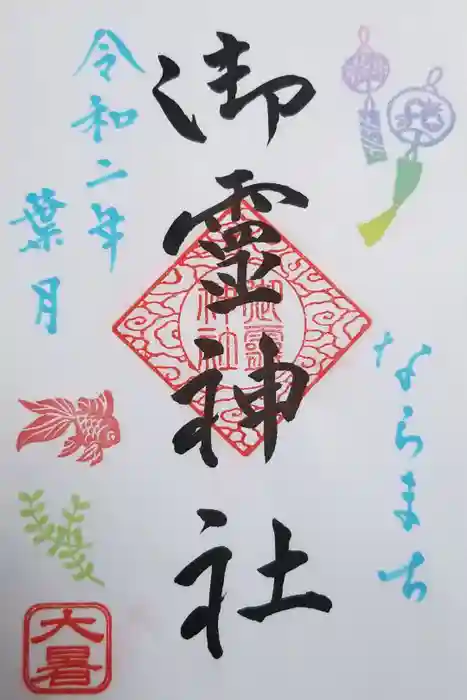 ならまち
御靈神社
御靈神社
令和二年
葉月
大暑